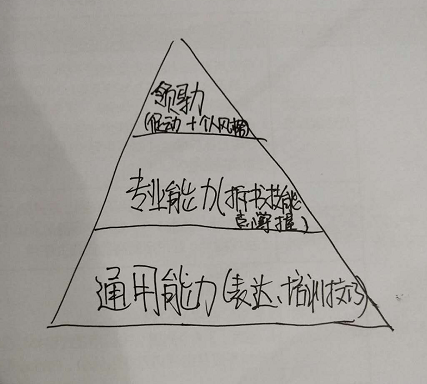 领导力
(促动+个人风格)
专业能力(拆书技能
掌握)
通用能力(表达、培训技巧)